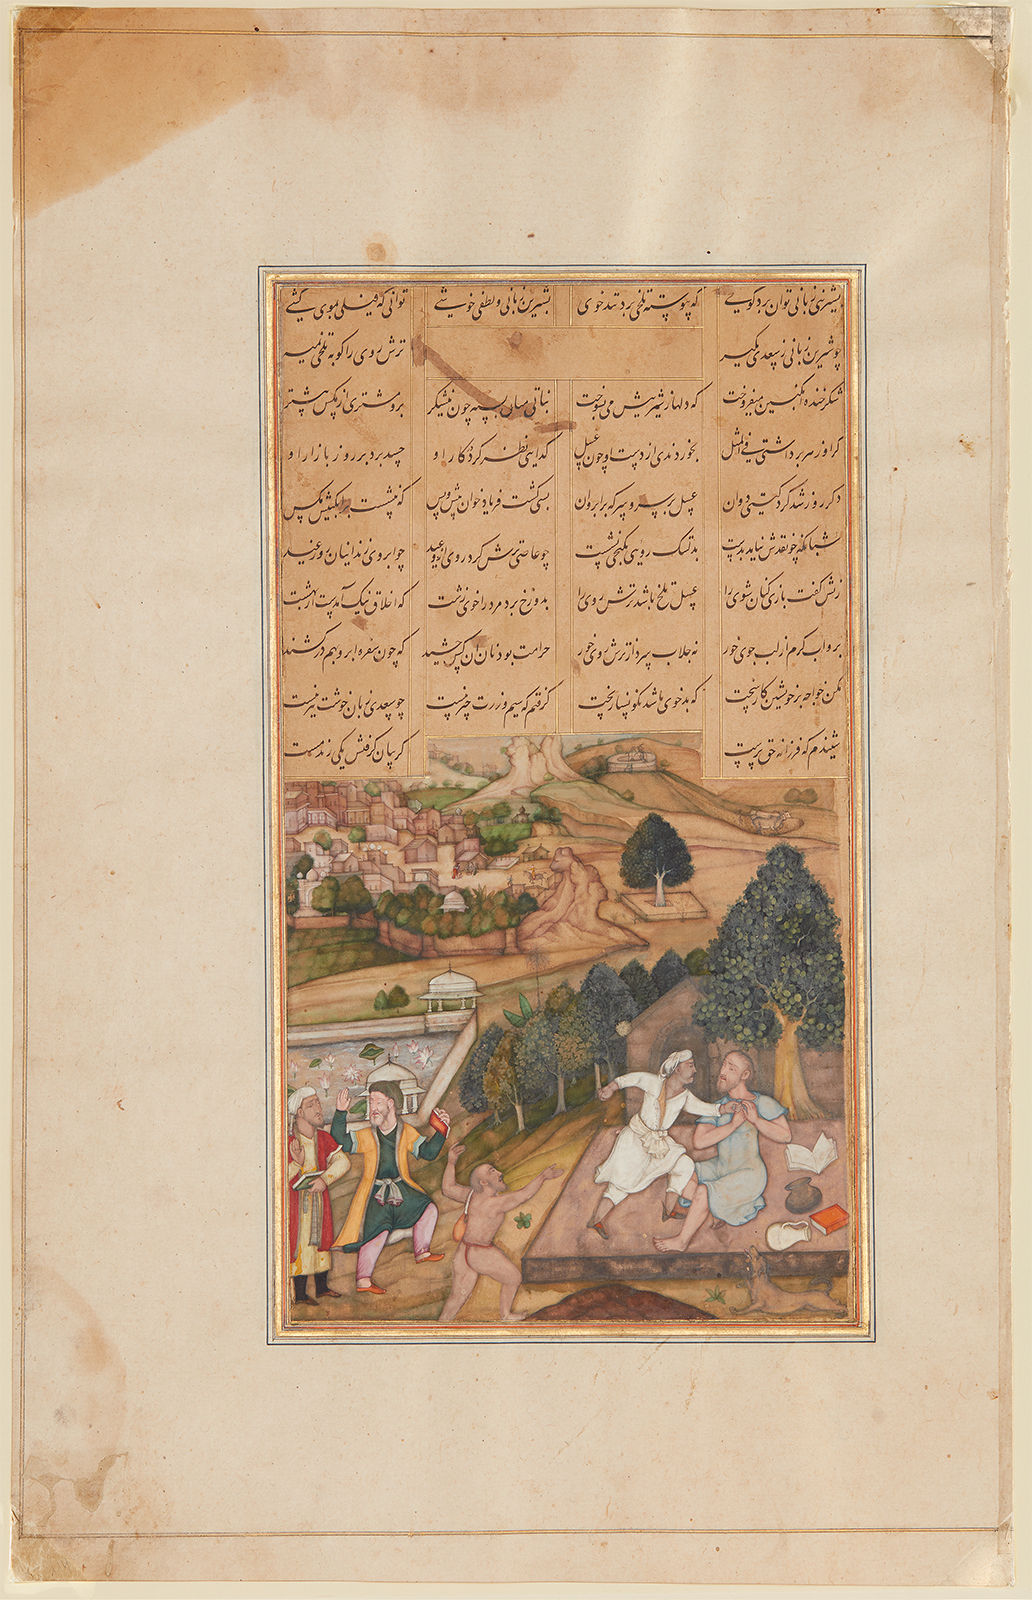 بشیرین زبانی توان برد گوی که پیوسته تلخی برد تندخوی بشیرین زبانی و لطف خوشی توانی که فیلی بموی کشی
چو شیرین زبانی ز سعدی بگیر ترش روی را کو به تلخی بمیر
شکر خنده انگبین میفروخت که دلها ز شیرینیش می بسوخت نباتی میان بسته چون نیشکر برو مشتری از مگس بیشتر
گر او زهر برداشتی فی المثل بخوردندی از دست او چون عسل گدایی نظر کرد در کار او حسد برد بر روز بازار او
دگر روز شد گرد گیتی دوان عسل بر سر و سرکه بر ابروان بسی گشت فریاد خوان پیش و پس که ننشست بر انگبینش مگس
شبانگه چو نقدش نیامد بدست بدلتنگ رویی بکنجی نشست چو عاصی ترش کرد روی از وعید چو ابروی زندانیان روز عید
زنش گفت بازی کنان شوی را عسل تلخ باشد ترش روی را بدوزخ برد مرد را خوی زشت که اخلاق نیک آمدست از بهشت
برو آب گرم از لب جوی خور نه جلاب سرد از ترش روی خور حرامت بود نان آن کس چشید که چون سفره ابرو بهم درکشید
مکن خواجه بر خویشتن کار سخت که بدخوی باشد نگونسار بخت گرفتم که سیم و زرت چیز نیست چو سعدی زبان خوشت نیز نیست
شنیدم که فرزانه حق پرست گریبان گرفتش یکی رند مست